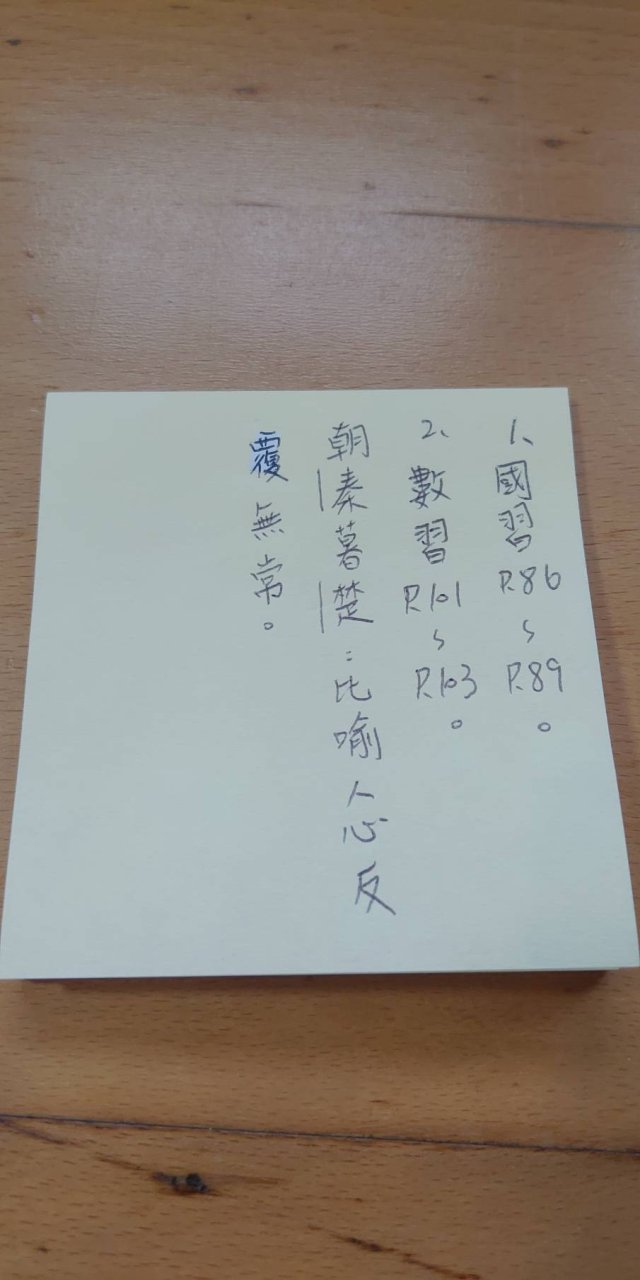 1、國習P.86~P.89。
2、數習P.101~P.103。
朝秦暮楚：比喻人心反
覆無常。